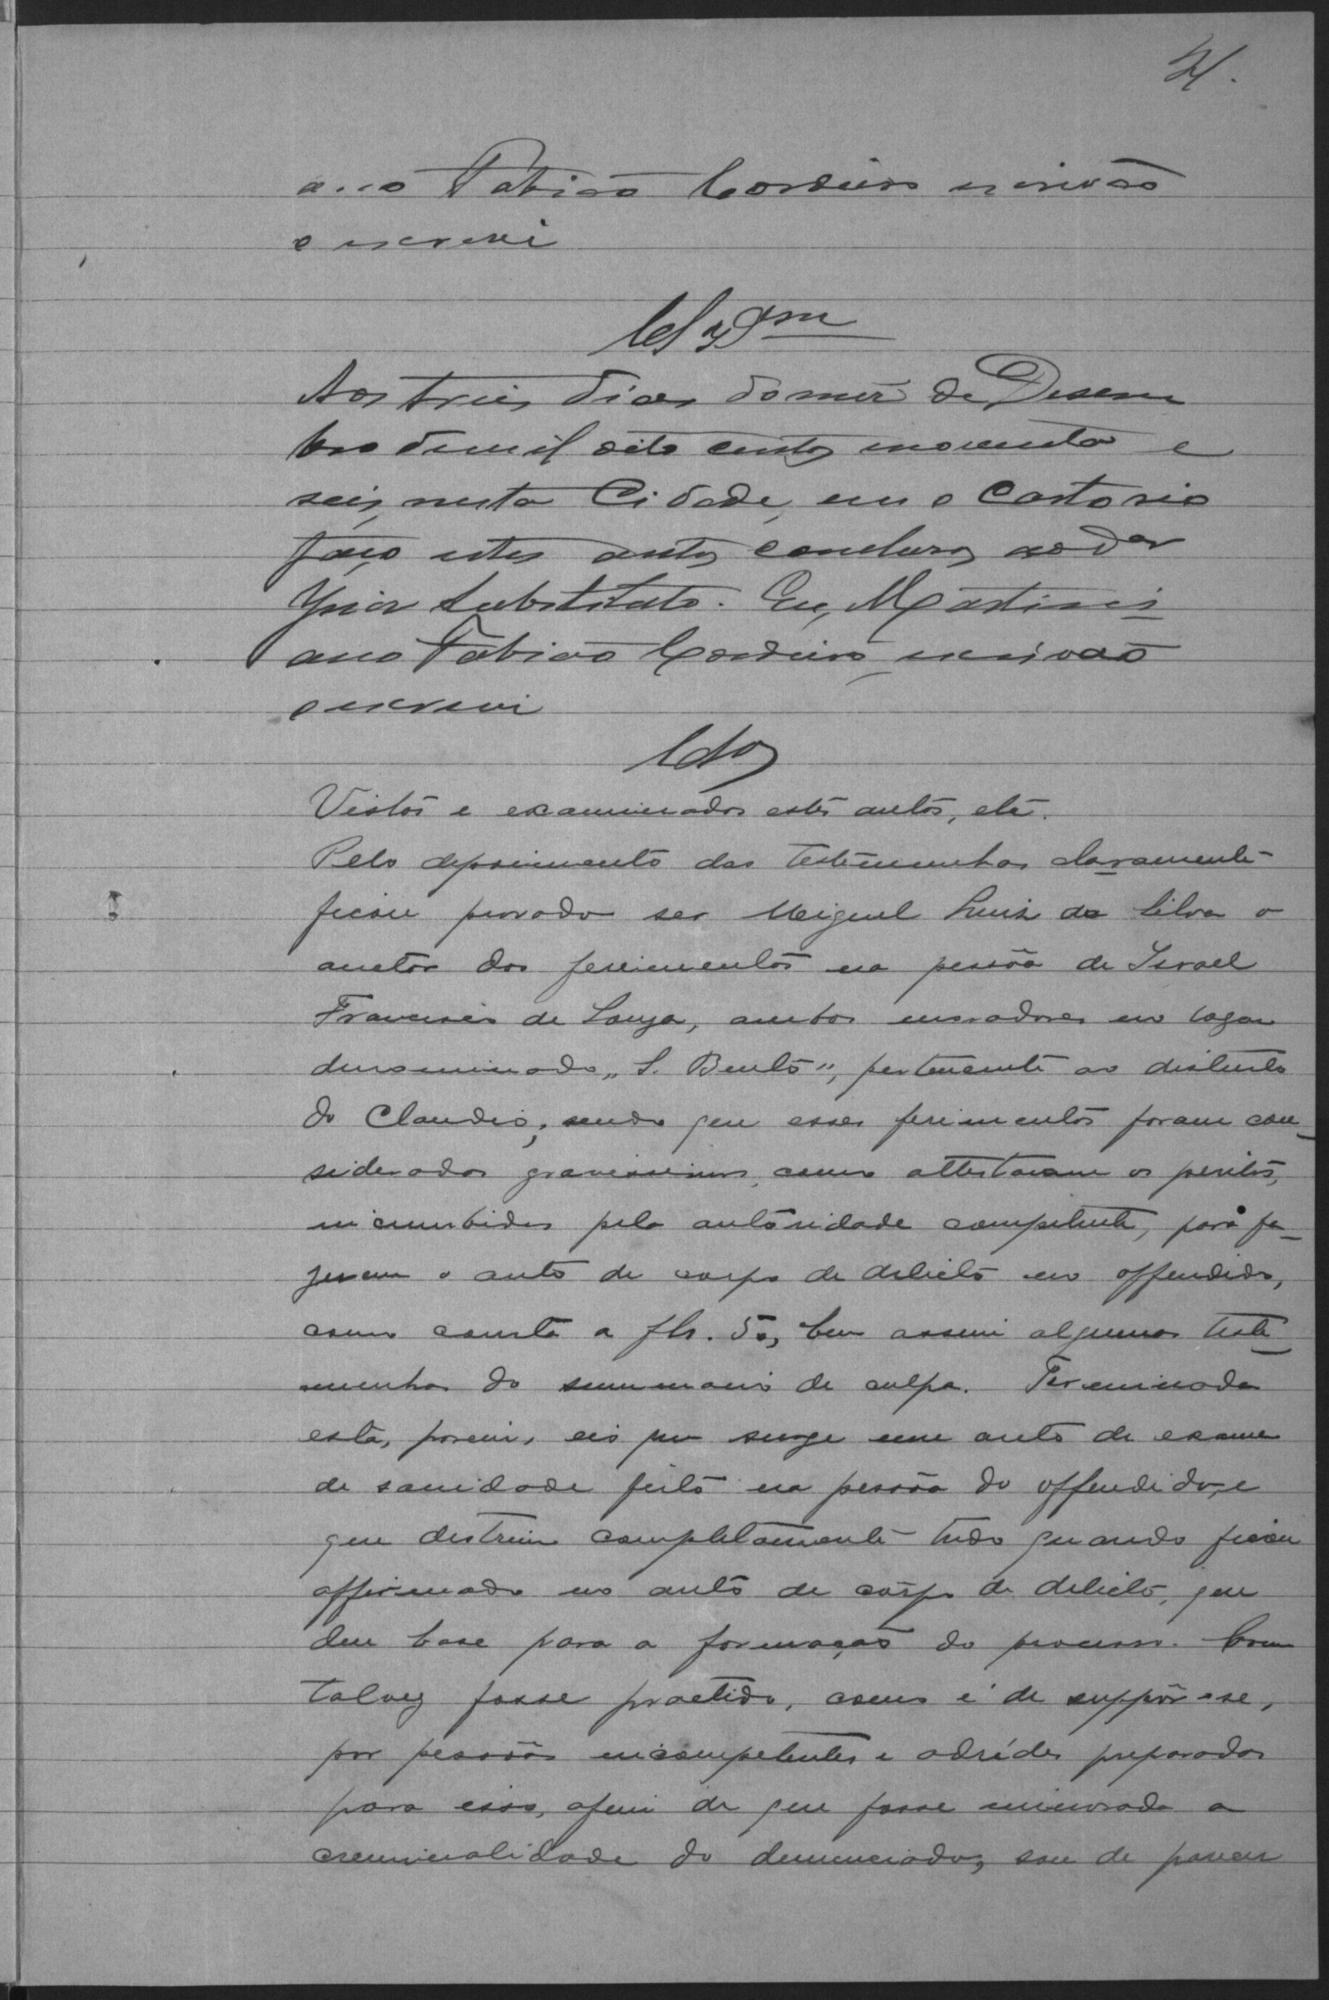 21.
ano Fabião Cordeiro escrivão
o escrevi
Clsam
Aos tres dias do mez de Desem
bro de mil oito centos noventa e
seis, nesta Cidade, em o Cartorio
faço estes autos conclusos ao Dor
Juiz Substituto. Eu, Martini
ano Fabião Cordeiro, escrivão
o escrevi
Clos
Vistos e examinados estes autos, etc.
Pelo depoimento das testemunhas claramente
ficou provado ser Miguel Luiz da Silva o
auctor dos ferimentos na pessôa de Israel
Francisco de Souza, ambos moradores no logar
denominado „S. Bento", pertencente ao districto
do Claudio; sendo que esses ferimentos foram con-
siderados gravissimos, como attestaram os peritos,
incumbidos pela autoridade competente, para fa-
zerem o auto de corpo de delicto no offendido,
como consta a fls. 5, bem assim algumas teste-
munhas do summario de culpa. Terminada
esta, porem, eis que surge um auto de exame
de sanidade feito na pessôa do offendido, e
que destruiu completamente tudo quando ficou
affirmado no auto de corpo de delicto, que
deu base para a formação do processo. Como
talvez fosse practido, como é de suppôr-se,
por pessôas incompetentes e adrédes preparadas
para isso, afim de que fosse minorada a
criminalidade do denunciado, sou de parecer